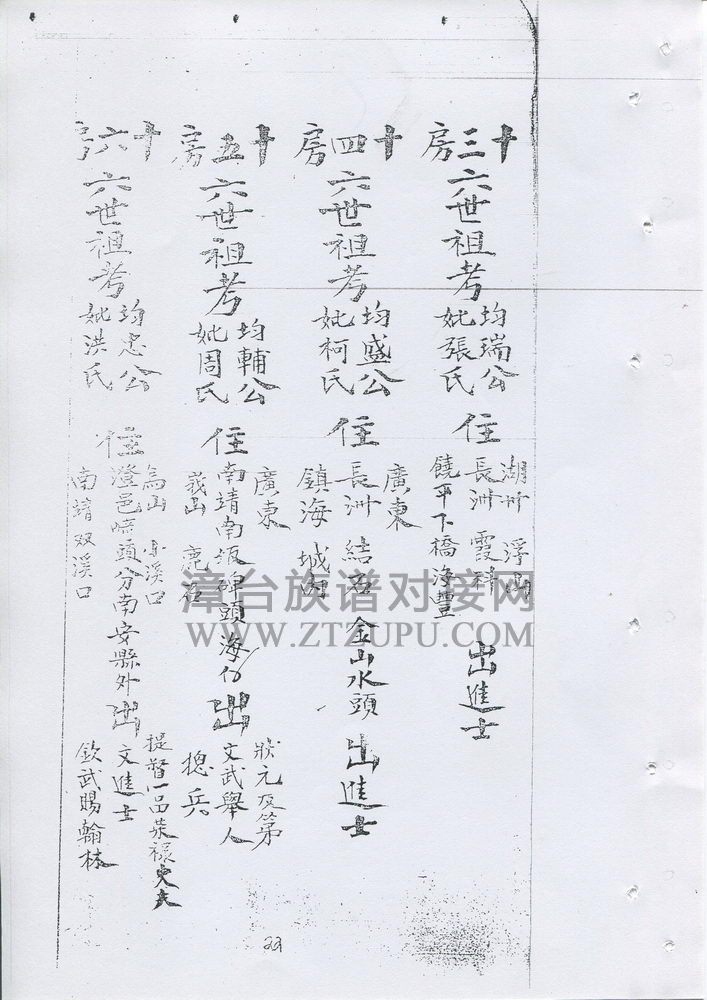 十三房
六世祖考
均瑞公
妣張氏
住
湖州 浮山
長洲 霞科
饒平下橋海豐
出進士
十四房
六世祖考
均盛公
妣柯氏
住
廣東
長洲 結石 金山水頭
鎮海 城內
出進士
十五房
六世祖考
均輔公
妣周氏
住
廣東
南靖南坂碑頭海
峩山 鹿石
出
狀元及第
文武舉人
摠兵
十六房
六世祖考
均忠公
妣洪氏
住
溪口
澄邑 頭分南安縣外
南靖双溪口
出
提督一品榮祿
文進士
欽武賜翰林
漳台族谱对接网
WWW.ZTZUPU.COM
22